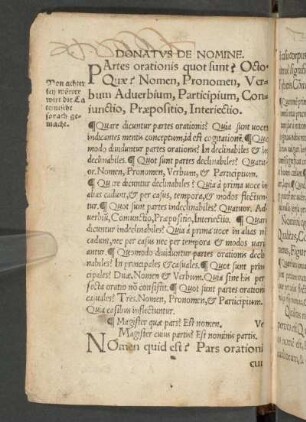 DONATVS DE NOMINE.
PArtes orationis quot sunt? Octo.
Quæ? Nomen, Pronomen, Ver-
bum Adverbium, Participium, Con-
iunctio, Præpositio, Interiectio.
Von achter
ley wörter
wirt die La
teinische
sprach ge-
macht.
¶ Quare dicuntur partes orationis? Quia sunt voces
indicantes mentis conceptum, id est cogitationē. ¶ Quo
modo dividuntur partes orationis? In declinabiles & in
declinabiles. ¶ Quot sunt partes declinabiles? Quatu-
or. Nomen, Pronomen, Verbum, & Participium.
¶ Quare dicuntur declinabiles? Quia à prima voce in
alias cadunt, & per casus, tempora, & modos flectun
tur. ¶ Quot sunt partes indeclinabiles? Quatuor. Ad
verbiū, Coniunctio, Præpositio, Interiectio. ¶ Quare
dicuntur indeclinabiles? Quia à prima voce in alias nō
cadunt, nec per casus nec per tempora & modos vari
antur. ¶ Quomodo dividuntur partes orationis decli
nabiles? In principales & casuales. ¶ Quot sunt prin
cipales? Duæ, Nomen & Verbum. Quia sine his per
fecta oratio nō consistit. ¶ Quot sunt partes orationis
casuales? Tres. Nomen, Pronomen, & Participium.
Quia casibus inflectuntur.
¶ Magister quæ pars? Est nomen. Ve
Magister cuius partis? Est nominis partis.
NOmen quid est? Pars orationi
cui